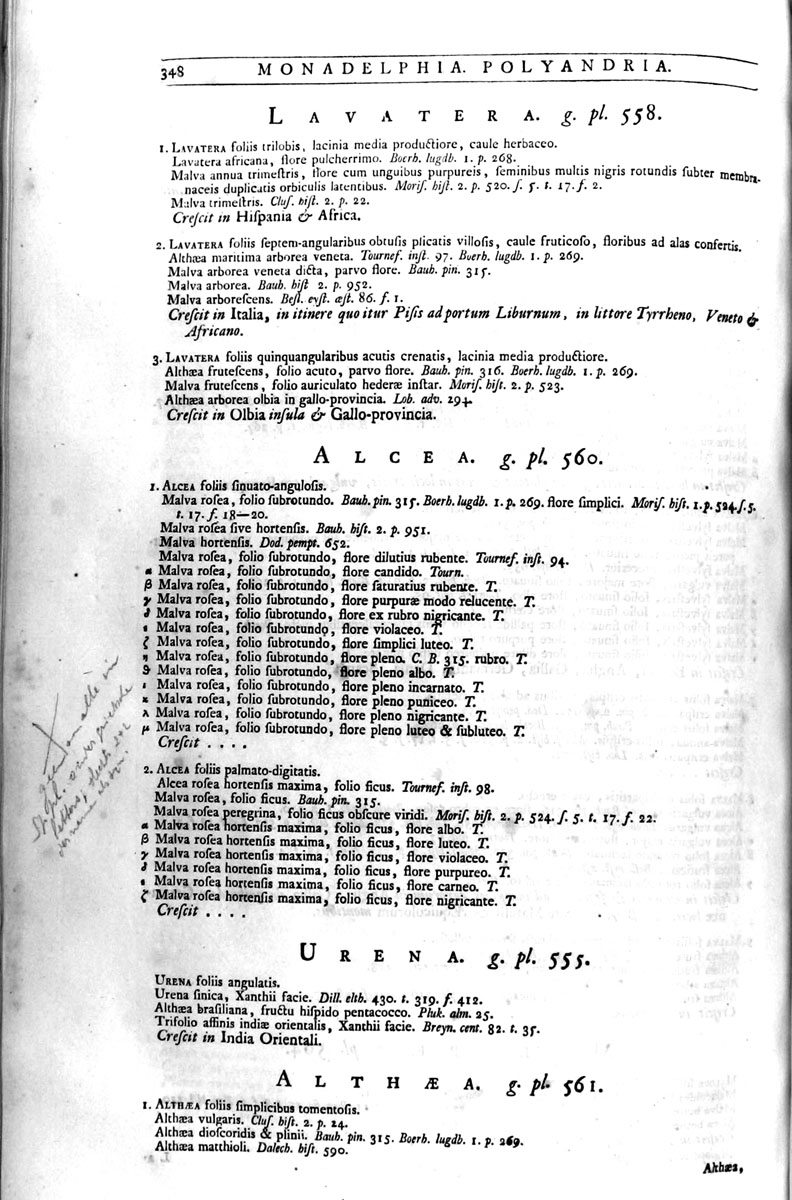 348 MONADELPHIA. POLYANDRIA.
LAVATERA. g. pl. 558.
1. LAVATERA foliis trilobis, lacinia media productiore, caule herbaceo.
Lavatera africana, flore pulcherrimo. Boerh. lugdb. 1. p. 268.
Malva annua trimeſtris, flore cum unguibus purpureis, ſeminibus multis nigris rotundis ſubter membra-
naceis duplicatis orbiculis latentibus. Moriſ. hiſt. 2. p. 520. ſ. 5. t. 17. f. 2.
Malva trimeſtris. Cluſ. hiſt. 2. p. 22.
Creſcit in Hiſpania & Africa.
2. LAVATERA foliis ſeptem-angularibus obtuſis plicatis villoſis, caule fruticoſo, floribus ad alas confertis.
Althæa maritima arborea veneta. Tournef. inſt. 97. Boerh. lugdb. 1. p. 269.
Malva arborea veneta dicta, parvo flore. Bauh. pin. 315.
Malva arborea. Bauh. hiſt 2. p. 952.
Malva arboreſcens. Beſl. eyſt. æſt. 86. f. 1.
Creſcit in Italia, in itinere quo itur Piſis ad portum Liburnum, in littore Tyrrheno, Veneto &
Africano.
3. LAVATERA foliis quinquangularibus acutis crenatis, lacinia media productiore.
Althæa fruteſcens, folio acuto, parvo flore. Bauh. pin. 316. Boerh. lugdb. 1. p. 269.
Malva fruteſcens, folio auriculato hederæ inſtar. Moriſ. hiſt. 2. p. 523.
Althæa arborea olbia in gallo-provincia. Lob. adv. 294.
Creſcit in Olbia inſula & Gallo-provincia.
ALCEA. g. pl. 560.
1. ALCEA foliis ſinuato-anguloſis.
Malva roſea, folio ſubrotundo. Bauh. pin. 315. Boerh. lugdb. 1. p. 269. flore ſimplici. Moriſ. hiſt. 1. p. 524. ſ. 5.
t. 17. f. 18—20.
Malva roſea ſive hortenſis. Bauh. hiſt. 2. p. 951.
Malva hortenſis. Dod. pempt. 652.
Malva roſea, folio ſubrotundo, flore dilutius rubente. Tournef. inſt. 94.
α Malva roſea, folio ſubrotundo, flore candido. Tourn.
β Malva roſea, folio ſubrotundo, flore ſaturatius rubente. T.
γ Malva roſea, folio ſubrotundo, flore purpuræ modo relucente. T.
δ Malva roſea, folio ſubrotundo, flore ex rubro nigricante. T.
ε Malva roſea, folio ſubrotundo, flore violaceo. T.
ζ Malva roſea, folio ſubrotundo, flore ſimplici luteo. T.
η Malva roſea, folio ſubrotundo, flore pleno. C. B. 315. rubro. T.
θ Malva roſea, folio ſubrotundo, flore pleno albo. T.
ι Malva roſea, folio ſubrotundo, flore pleno incarnato. T.
κ Malva roſea, folio ſubrotundo, flore pleno puniceo. T.
λ Malva roſea, folio ſubrotundo, flore pleno nigricante. T.
μ Malva roſea, folio ſubrotundo, flore pleno luteo & ſubluteo. T.
Creſcit . . . .
2. ALCEA foliis palmato-digitatis.
Alcea roſea hortenſis maxima, folio ficus. Tournef. inſt. 98.
Malva roſea, folio ficus. Bauh. pin. 315.
Malva roſea peregrina, folio ficus obſcure viridi. Moriſ. hiſt. 2. p. 524. ſ. 5. t. 17. f. 22.
α Malva roſea hortenſis maxima, folio ficus, flore albo. T.
β Malva roſea hortenſis maxima, folio ficus, flore luteo. T.
γ Malva roſea hortenſis maxima, folio ficus, flore violaceo. T.
δ Malva roſea hortenſis maxima, folio ficus, flore purpureo. T.
ε Malva roſea hortenſis maxima, folio ficus, flore carneo. T.
ζ Malva roſea hortenſis maxima, folio ficus, flore nigricante. T.
Creſcit . . . .
URENA. g. pl. 555.
URENA foliis angulatis.
Urena ſinica, Xanthii facie. Dill. elth. 430. t. 319. f. 412.
Althæa braſiliana, fructu hiſpido pentacocco. Pluk. alm. 25.
Trifolio affinis indiæ orientalis, Xanthii facie. Breyn. cent. 82. t. 35.
Creſcit in India Orientali.
ALTHÆA. g. pl. 561.
1. ALTHÆA foliis ſimplicibus tomentoſis.
Althæa vulgaris. Cluſ. hiſt. 2. p. 24.
Althæa dioſcoridis & plinii. Bauh. pin. 315. Boerh. lugdb. 1. p. 269.
Althæa matthioli. Dalech. hiſt. 590.
Althæa,